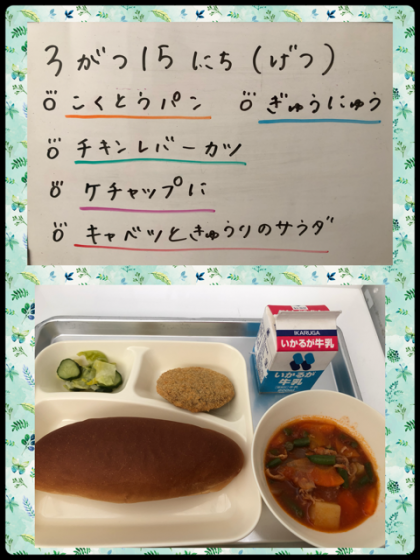 3がつ15にち(げつ)
こくとうパン ぎゅうにゅう
チキンレバーカツ
ケチャップに
キャベツときゅうりのサラダ
IKARUGA
いかるが牛乳
いかるが
牛乳